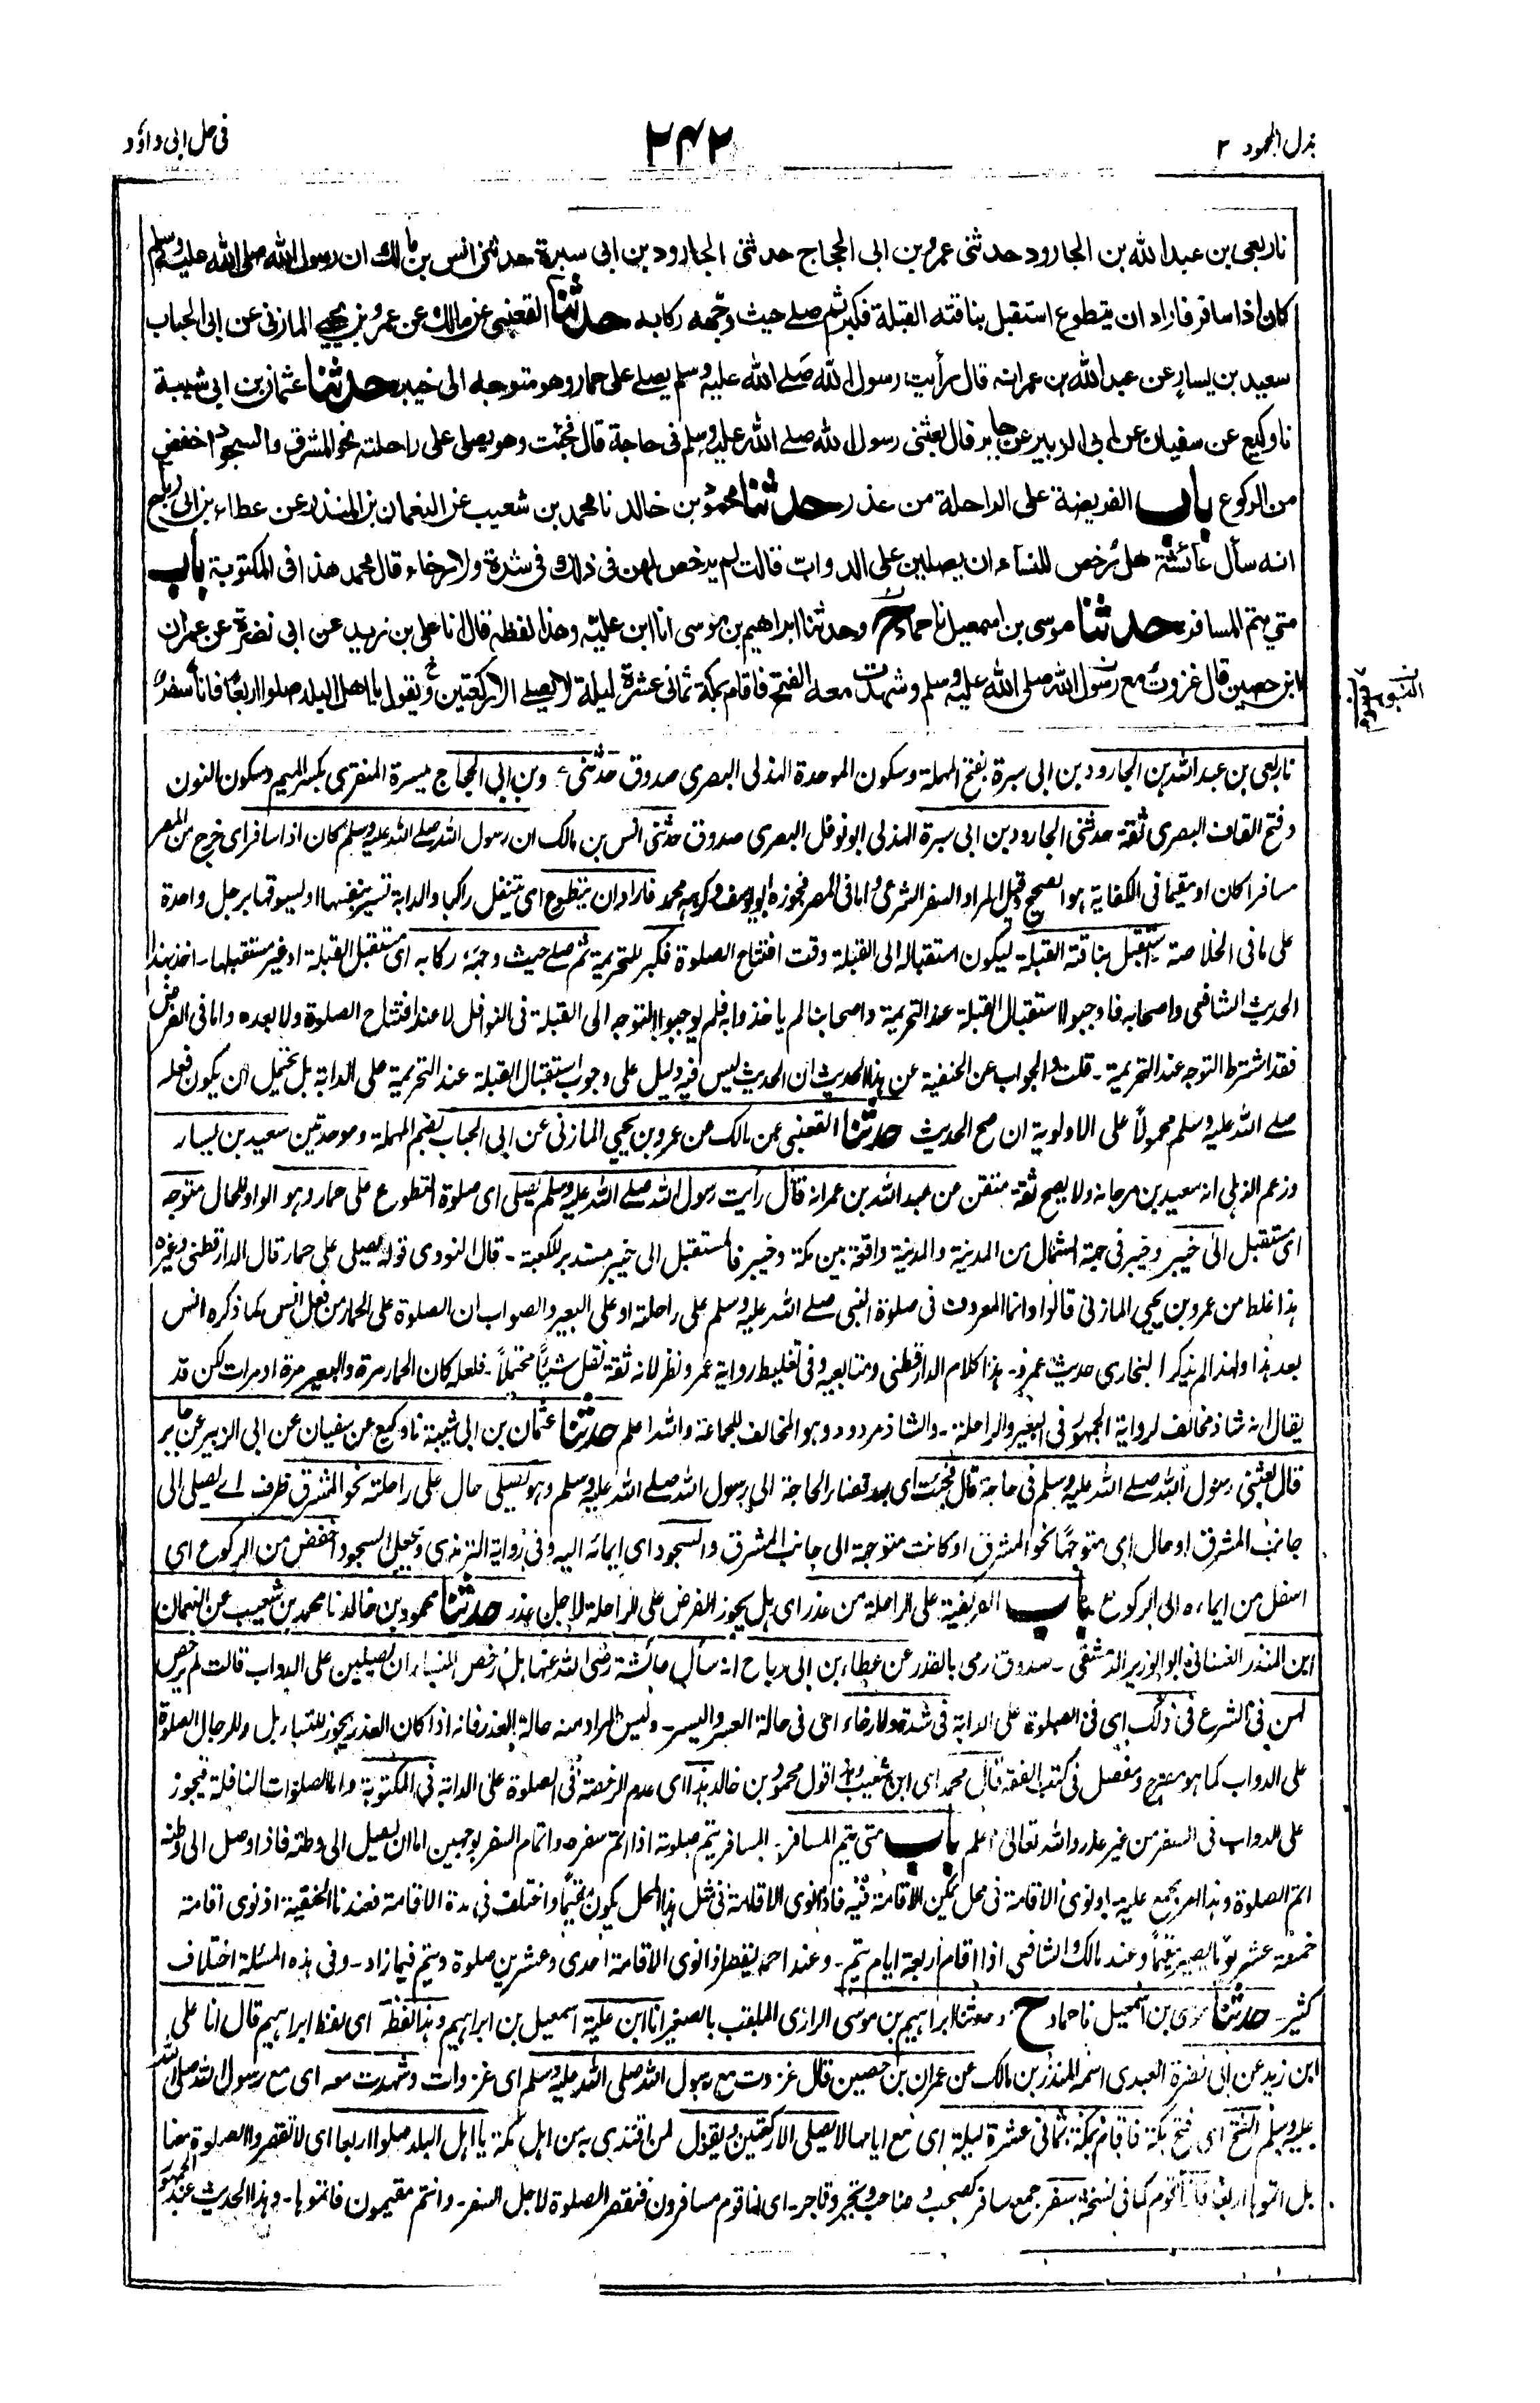 بذل المجهود ٢
٢٤٢
في حل ابى داؤد
نا ربعى بن عبد الله بن الجارود حدثنى عمرو بن ابى الحجاج حدثنى الجارود بن ابى سبرة حدثنى انس بن مالك ان رسول الله صلى الله عليه وسلم
كان اذا سافر فاراد ان يتطوع استقبل بناقته القبلة فكبر ثم صلے حيث وجّهه ركابه حدثنا القعنبى عن مالك عن عمرو بن يحيى المازنى عن ابى الحباب
سعيد بن يسار عن عبد الله بن عمر انه قال رأيت رسول الله صلے الله عليه وسلم يصلے على حمار وهو متوجه الى خيبر حدثنا عثمان بن ابى شيبة
نا وكيع عن سفيان عن ابى الزبير عن جابر قال بعثنى رسول الله صلے الله عليه وسلم فى حاجة قال فجئت وهو يصلى على راحلته نحو المشرق والسجود اخفض
من الركوع باب الفريضة على الراحلة من عذر حدثنا محمود بن خالد نا محمد بن شعيب عن النعمان بن المنذر عن عطاء بن ابى رباح
انه سأل عائشة هل رُخص للنساء ان يصلين على الدواب قالت لم يرخص لهن فى ذلك فى شدة ولا رخاء قال محمد هذا فى المكتوبة باب
متى يتم المسافر حدثنا موسى بن اسمعيل نا حماد ح وحدثنا ابراهيم بن موسى انا ابن علية وهذا لفظه قال انا على بن زيد عن ابى نضرة عن عمران
ابن حصين قال غزوت مع رسول الله صلى الله عليه وسلم وشهدت معه الفتح فاقام بمكة ثمانى عشرة ليلة لا يصلے الا ركعتين ويقول يا اهل البلد صلوا اربعا فانا سفر
نا ربعى بن عبد الله بن الجارود بن ابى سبرة بفتح المهملة وسكون الموحدة الهذلى البصرى صدوق حدثنى عمرو بن ابى الحجاج ميسرة المنقرى بكسر الميم وسكون النون
وفتح القاف البصرى ثقة حدثنى الجارود بن ابى سبرة الهذلى ابو نوفل البصرى صدوق حدثنى انس بن مالك ان رسول الله صلے الله عليه وسلم كان اذا سافر اى خرج من المصر
مسافرا كان او مقيما فى الكفاية هو الصحيح وقيل المراد السفر الشرعى واما فى المصر فجوزه ابو يوسف وكرهه محمد فاراد ان يتطوع اى يتنفل راكبا والدابة تسير بنفسها او يسوقها برجل واحدة
على ما فى الخلاصة يستقبل بناقته القبلة ليكون استقباله الى القبلة وقت افتتاح الصلوة فكبر للتحريمة ثم صلے حيث وجهه ركابه اى مستقبل القبلة او غير مستقبلها - اخذ بهذا
الحديث الشافعى واصحابه فاوجبوا استقبال القبلة عند التحريمة واصحابنا لم ياخذوا به فلم يوجبوا التوجه الى القبلة فى النوافل لا عند افتتاح الصلوة ولا بعده واما فى الفرض
فقد اشترط التوجه عند التحريمة - قلت والجواب عن الحنفية عن هذا الحديث ان الحديث ليس فيه دليل على وجوب استقبال القبلة عند التحريمة على الدابة بل يحتمل ان يكون فعله
صلے الله عليه وسلم محمولاً على الاولوية ان صح الحديث حدثنا القعنبى عن مالك عن عمرو بن يحيى المازنى عن ابى الحباب بضم المهملة وموحدتين سعيد بن يسار
وزعم الذهلى انه سعيد بن مرجانة ولا يصح ثقة متقن عن عبد الله بن عمر انه قال رأيت رسول الله صلے الله عليه وسلم يصلى اى صلوة التطوع على حمار وهو الواو للحال متوجه
اى مستقبل الى خيبر وخيبر فى جهة الشمال من المدينة والمدينة واقعة بين مكة وخيبر فالمستقبل الى خيبر مستدبر للكعبة - قال النووى قوله يصلى على حمار قال الدارقطنى وغيره
هذا غلط من عمرو بن يحيى المازنى قالوا وانما المعروف فى صلوة النبى صلے الله عليه وسلم على راحلته او على البعير والصواب ان الصلوة على الحمار من فعل انس كما ذكره انس
بعد هذا ولهذا لم يذكر البخارى حديث عمرو - هذا كلام الدارقطنى ومتابعيه وفى تغليط رواية عمرو نظر لانه ثقة نقل شيئاً محتملاً - فلعله كان الحمار مرة والبعير مرة او مرات لكن قد
يقال انه شاذ مخالف لرواية الجمهور فى البعير والراحلة - والشاذ مردود وهو المخالف للجماعة والله اعلم حدثنا عثمان بن ابى شيبة نا وكيع عن سفيان عن ابى الزبير عن جابر
قال بعثنى رسول الله صلے الله عليه وسلم فى حاجة قال فجئت اى بعد قضاء الحاجة الى رسول الله صلے الله عليه وسلم وهو يصلى حال على راحلته نحو المشرق ظرف اے يصلى الى
جانب المشرق او حال اى متوجهاً نحو المشرق او كانت متوجهة الى جانب المشرق والسجود اى ايمائه اليه وفى رواية الترمذى ويجعل السجود اخفض من الركوع اى
اسفل من ايماءه الى الركوع باب الفريضة على الراحلة من عذر اى هل يجوز الفرض على الراحلة لاجل عذر حدثنا محمود بن خالد نا محمد بن شعيب عن النعمان
ابن المنذر الغسانى ابو الوزير الدمشقى - صدوق رمى بالقدر عن عطاء بن ابى رباح انه سأل عائشة رضى الله عنها هل رخص للنساء ان يصلين على الدواب قالت لم يرخص
لهن فى الشرع فى ذلك اى فى الصلوة على الدابة فى شدة ولا رخاء اى فى حالة العسر واليسر - وليس المراد منه حالة العذر فانه اذا كان العذر يجوز للنساء بل وللرجال الصلوة
على الدواب كما هو مصرح ومفصل فى كتب الفقه قال محمد اى ابن شعيب اقول محمود بن خالد هذا اى عدم الرخصة فى الصلوة على الدابة فى المكتوبة واما الصلوات النافلة فيجوز
على الدواب فى السفر من غير عذر والله تعالى اعلم باب متى يتم المسافر - المسافر يتم صلوته اذا اتم سفره واتمام السفر بوجهين اما ان يصل الى وطنه فاذا وصل الى وطنه
اتم الصلوة وهذا امر مجمع عليه - او نوى الاقامة فى محل يمكن الاقامة فيه فاذا نوى الاقامة فى مثل هذا المحل يكون مقيماً واختلف فى مدة الاقامة فعندنا الحنفية اذ نوى اقامة
خمسة عشر يوماً يصير مقيماً وعند مالك والشافعى اذا اقام اربعة ايام يتم - وعند احمد يقصر اذا نوى الاقامة احدى وعشرين صلوة ويتم فيما زاد - وفى هذه المسئلة اختلاف
كثير - حدثنا موسى بن اسمعيل نا حماد ح وحدثنا ابراهيم بن موسى الرازى الملقب بالصغير انا ابن علية اسمعيل بن ابراهيم وهذا لفظه اى لفظ ابراهيم قال انا على
ابن زيد عن ابى نضرة العبدى اسمه المنذر بن مالك عن عمران بن حصين قال غزوت مع رسول الله صلى الله عليه وسلم اى غزوات وشهدت معه اى مع رسول الله صلى الله
عليه وسلم الفتح اى فتح مكة فاقام بمكة ثمانى عشرة ليلة اى مع ايامها لا يصلى الا ركعتين ويقول لمن اقتدى به من اهل مكة يا اهل البلد صلوا اربعا اى لا تقصروا الصلوة معنا
بل اتموها اربعا فانا قوم كما فى نسخة سفر جمع سافر كصحب وصاحب وتجر وتاجر - اى انا قوم مسافرون فنقصر الصلوة لاجل السفر - وانتم مقيمون فاتموها - وهذا الحديث عند الجمهور